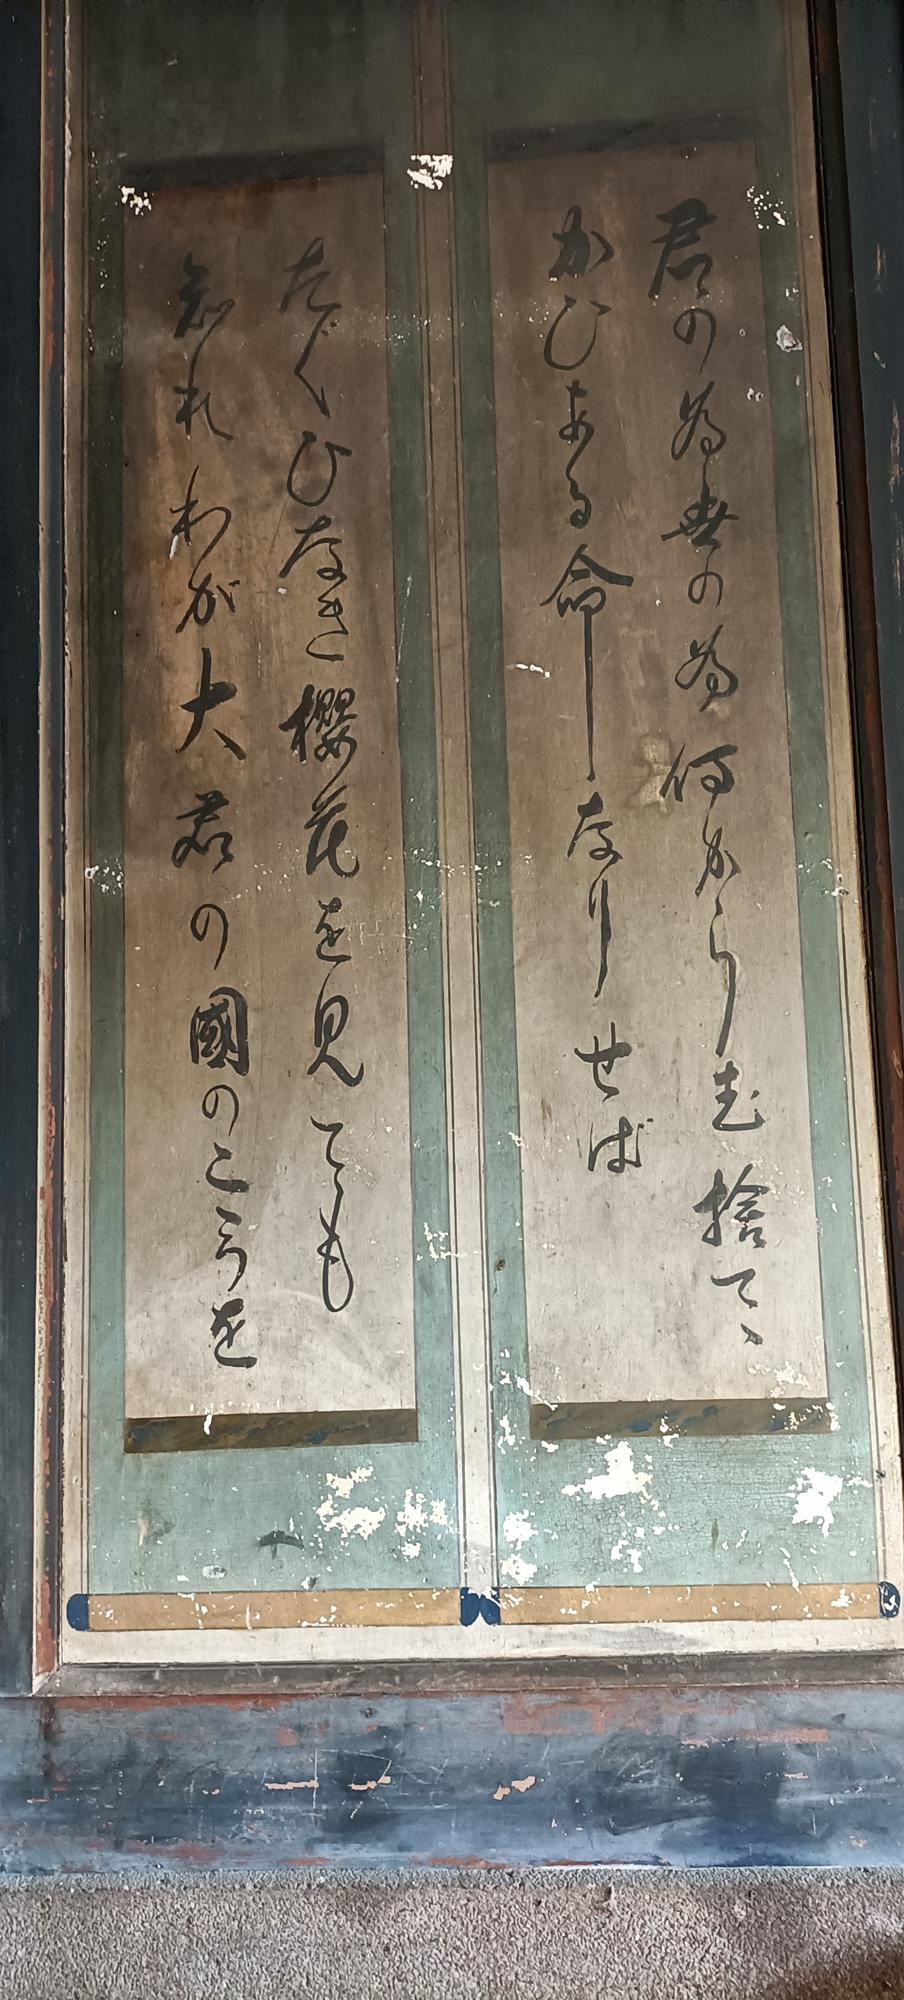 君の為世の為何かをしむ捨てゝ
かひある命なりせば
たぐひなき櫻花を見てゝも
知れわが大君の國のこゝろを